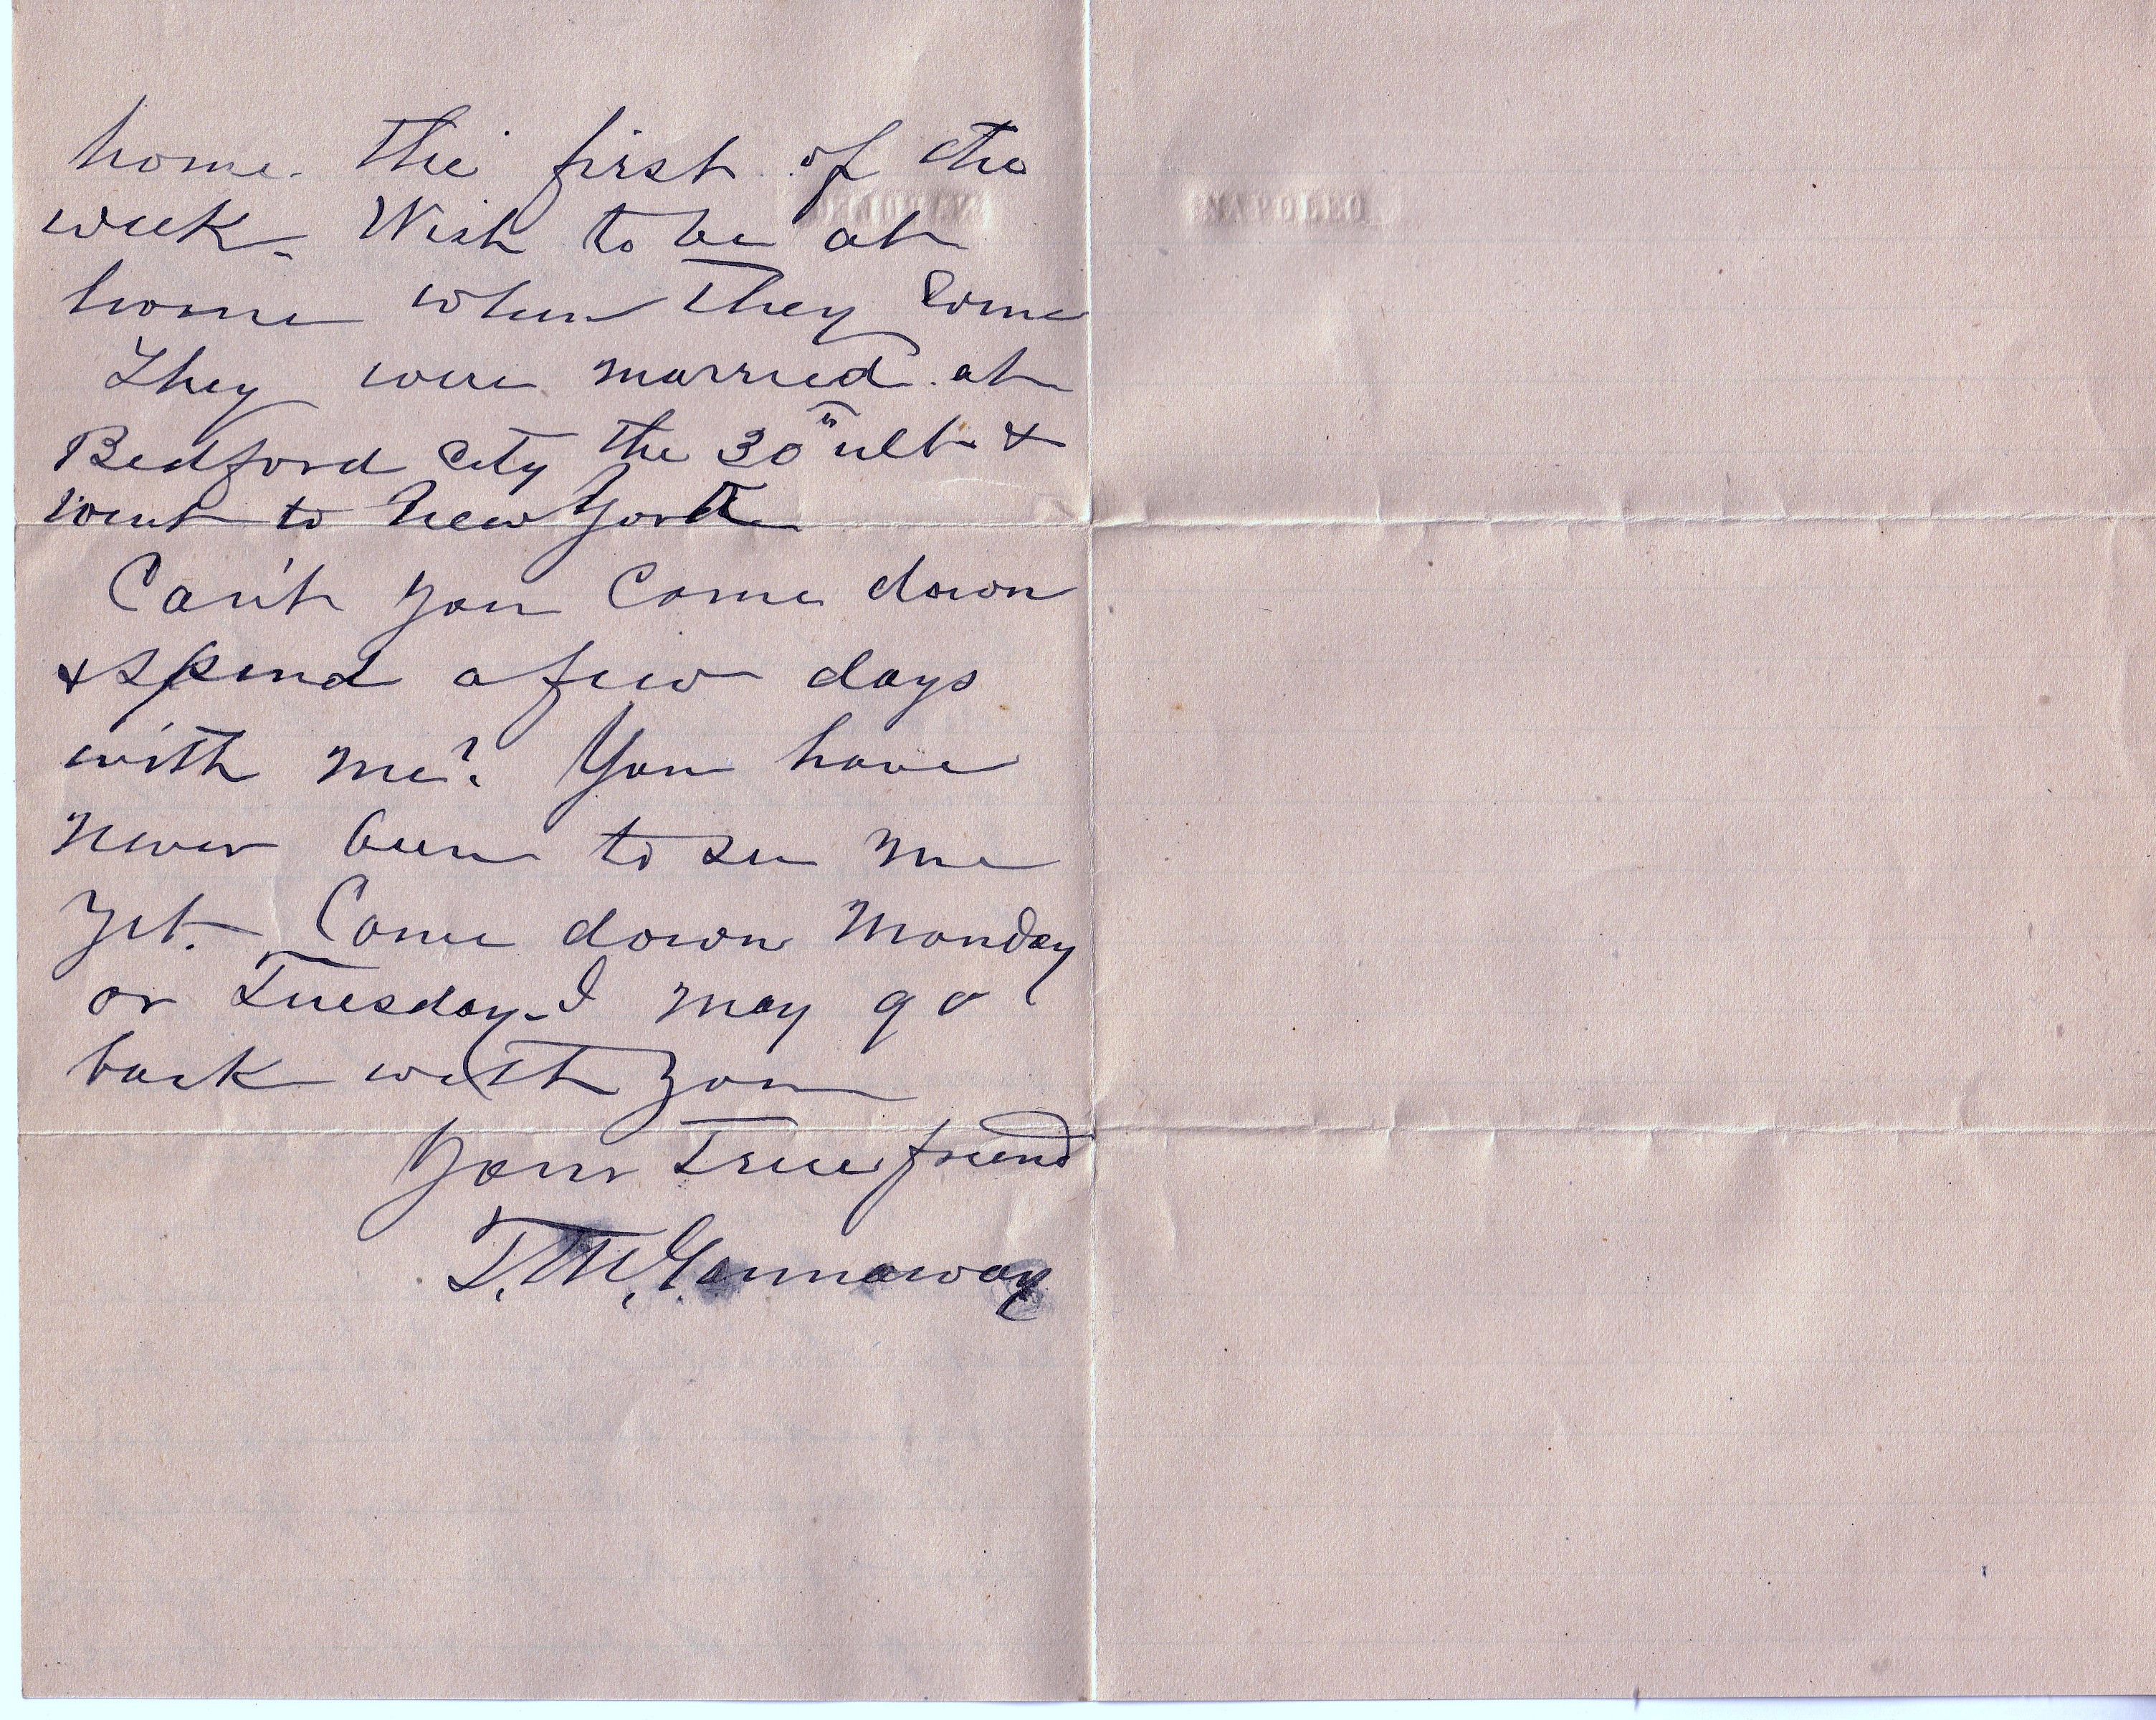 home. The first of the
week. Wish to be at
home when They Come
They were married at
Bedford City the 30" ult &
went to New York
Can't you Come down
& spend a few days
with me? You have
never been to see me
yet. Come down Monday
or Tuesday - I may go
back with you
Your True friend
T. M. Gannaway